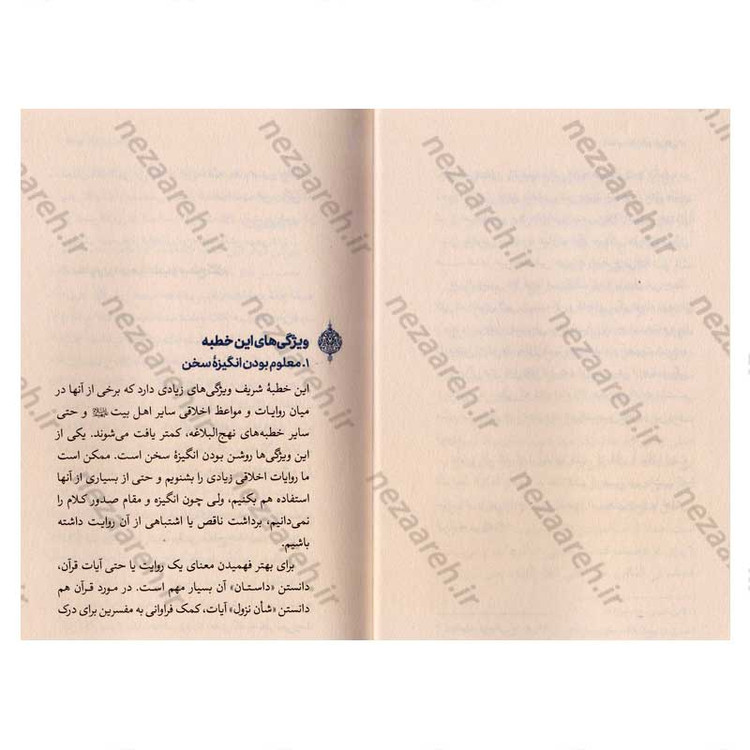 ویژگی‌های این خطبه
۱. معلوم بودن انگیزهٔ سخن
این خطبهٔ شریف ویژگی‌های زیادی دارد که برخی از آنها در
میان روایات و مواعظ اخلاقی سایر اهل بیت و حتی
سایر خطبه‌های نهج‌البلاغه، کمتر یافت می‌شوند. یکی از
این ویژگی‌ها روشن بودن انگیزهٔ سخن است. ممکن است
ما روایات اخلاقی زیادی را بشنویم و حتی از بسیاری از آنها
استفاده هم بکنیم، ولی چون انگیزه و مقام صدور کلام را
نمی‌دانیم، برداشت ناقص یا اشتباهی از آن روایت داشته
باشیم.
برای بهتر فهمیدن معنای یک روایت یا حتی آیات قرآن،
دانستن «داستان» آن بسیار مهم است. در مورد قرآن هم
دانستن «شأن نزول» آیات، کمک فراوانی به مفسرین برای درک
nezaareh.ir
nezaareh.ir
nezaareh.ir
nezaareh.ir
nezaareh.ir
nezaareh.ir
nezaareh.ir
nezaareh.ir
nezaareh.ir